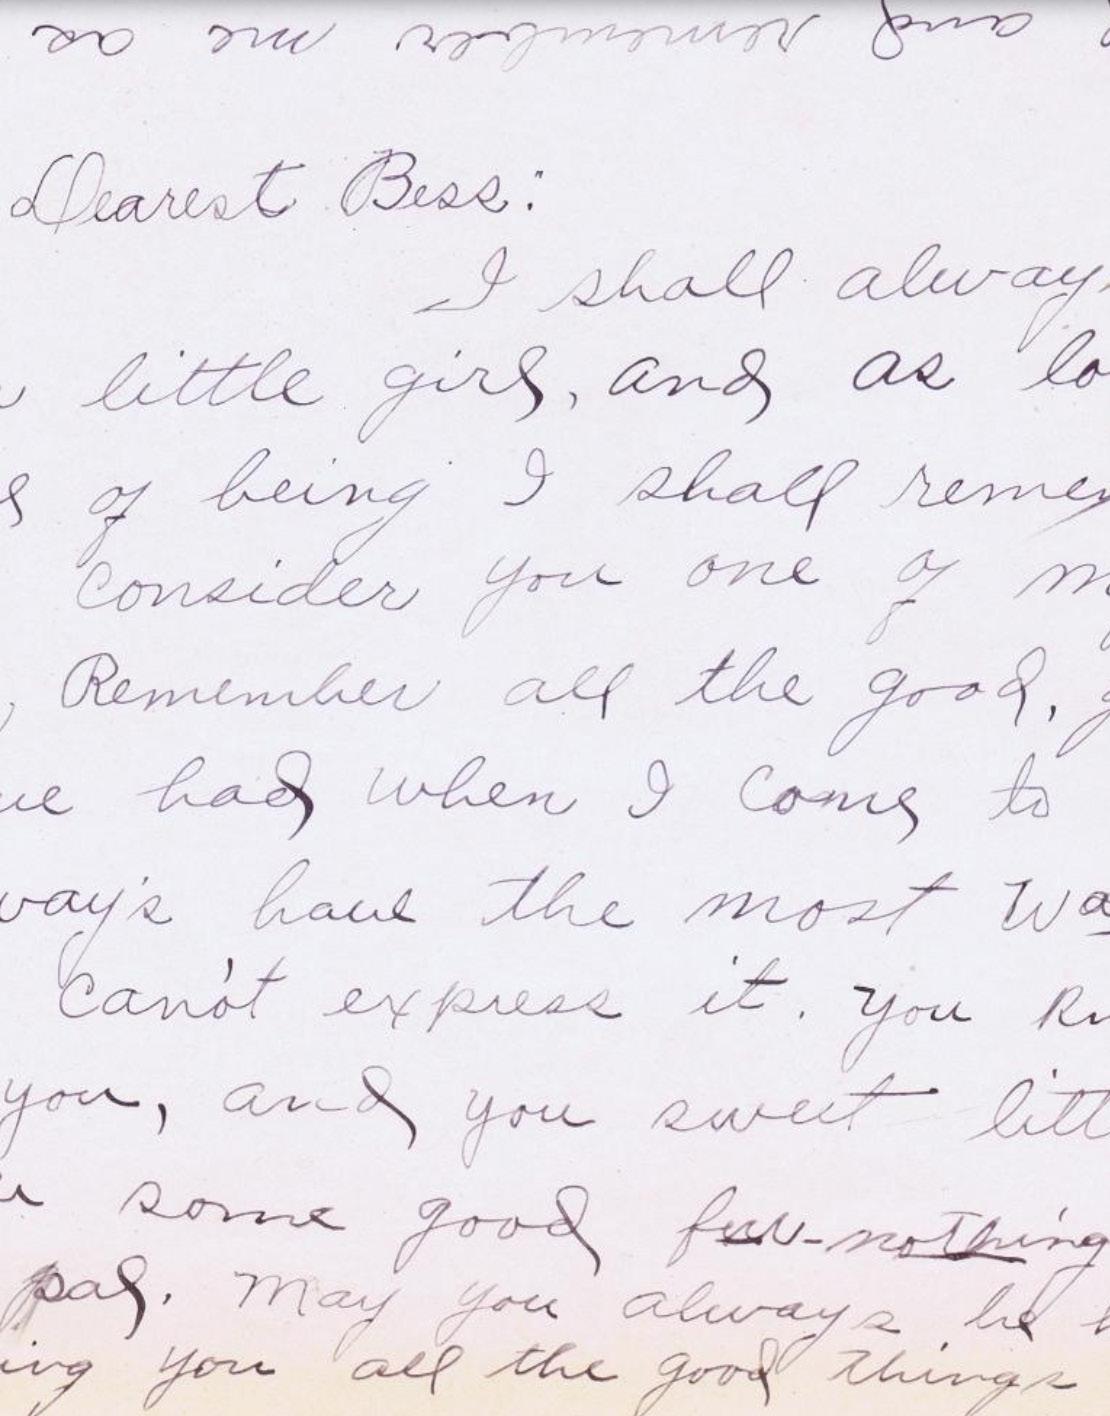 and remember me as
Dearest Bess:
I shall always
little girl, and as lo
of being I shall remem
consider you one of m
Remember all the good, g
ve had when I come to
ways have the most wa
can't express it. you kn
you, and you sweet litt
some good fur-nothing
pal. May you always be h
ing you all the good things